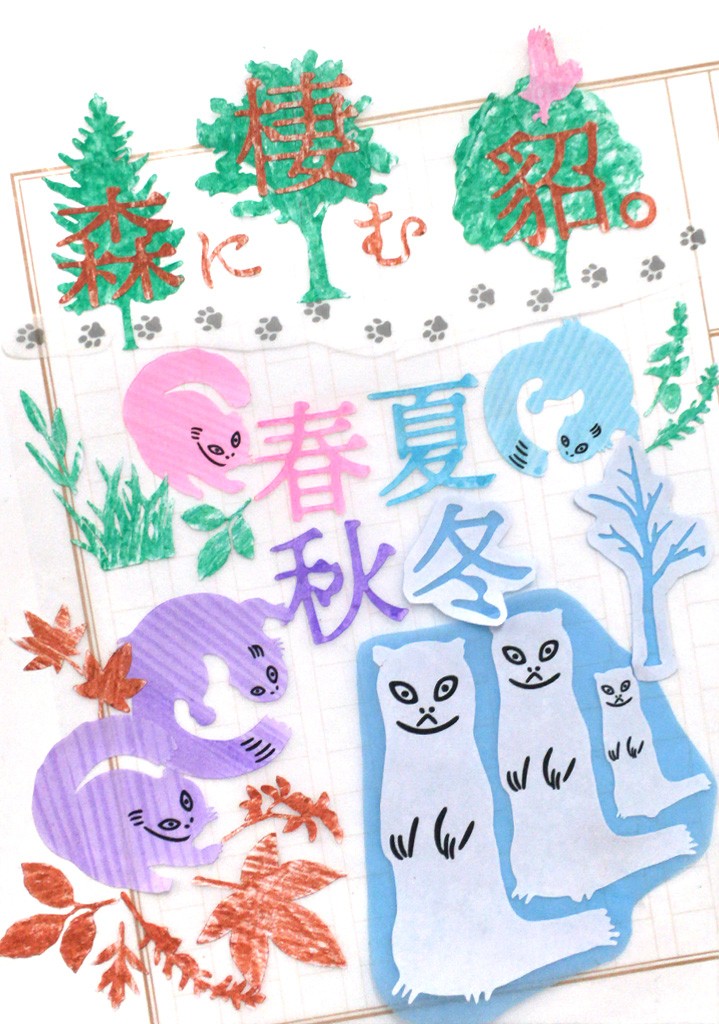 森に棲む貂。
春夏
秋冬